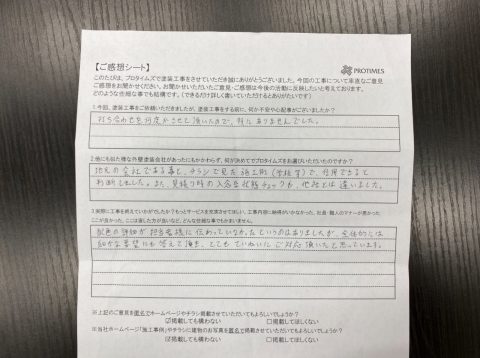 【ご感想シート】
PROTIMES
このたびは、プロタイムズで塗装工事をさせていただき誠にありがとうございました。今回の工事について率直なご意見
ご感想をお聞かせください。お聞かせいただいたご意見・ご感想は今後の活動に反映したいと考えております。
どのような些細な事でも結構です。（できるだけ詳しく書いていただけるとありがたいです）
1.今回、塗装工事をご依頼いただきましたが、塗装工事をする前に、何か不安や心配事がございましたか？
打ち合わせを何度かさせて頂いたので、特にありませんでした。
2.他にも似た様な外壁塗装会社があったにもかかわらず、何が決めてでプロタイムズをお選びいただいたのですか？
地元の会社である事と、チラシで見た施工前(学校等)で、信用できると
判断しました。また、見積り時の入念な状態チェックが、他社とは違いました。
3.実際に工事を終えていかがでしたか？もっとサービスを充実させてほしい、工事内容に納得がいかなかった、社員・職人のマナーが悪かった
ここが良かった、ここは直した方が良いなど、どんな些細な事でもかまいません。
配色の詳細が担当者様に伝わっていなかったというのはありましたが、全体的には
細かな要望にも答えて頂き、とてもていねいにご対応頂いたと思っています。
※上記のご意見を匿名でホームページやチラシ掲載させていただいてもよろしいでしょうか？
☑掲載しても構わない □掲載してほしくない
※当社ホームページ「施工事例」やチラシに建物のお写真を匿名で掲載させていただいてもよろしいでしょうか？
☑掲載しても構わない □掲載してほしくない